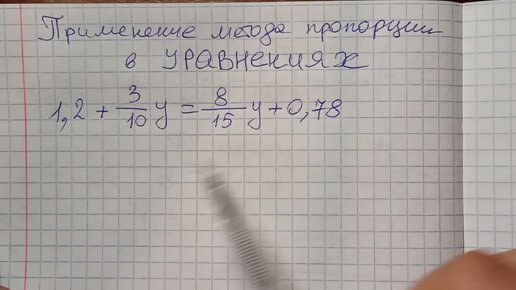 Применение метода пропорции
в УРАВНЕНИЯХ
1,2 + 3/10 y = 8/15 y + 0,78